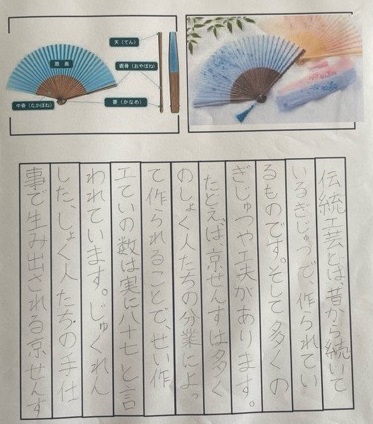 天（てん）
親骨（おやぼね）
中骨（なかぼね）
要（かなめ）
伝統工芸とは昔から続いて
いるぎじゅつで、作られてい
るものです。そして多くの
ぎじゅつや工夫があります。
たとえば、京せんすは多く
のしょく人たちの分業によっ
て作られることで、せい作
工ていの数は実に八十七と言
われています。じゅくれん
した、しょく人たちの手仕
事で生み出される京せんす